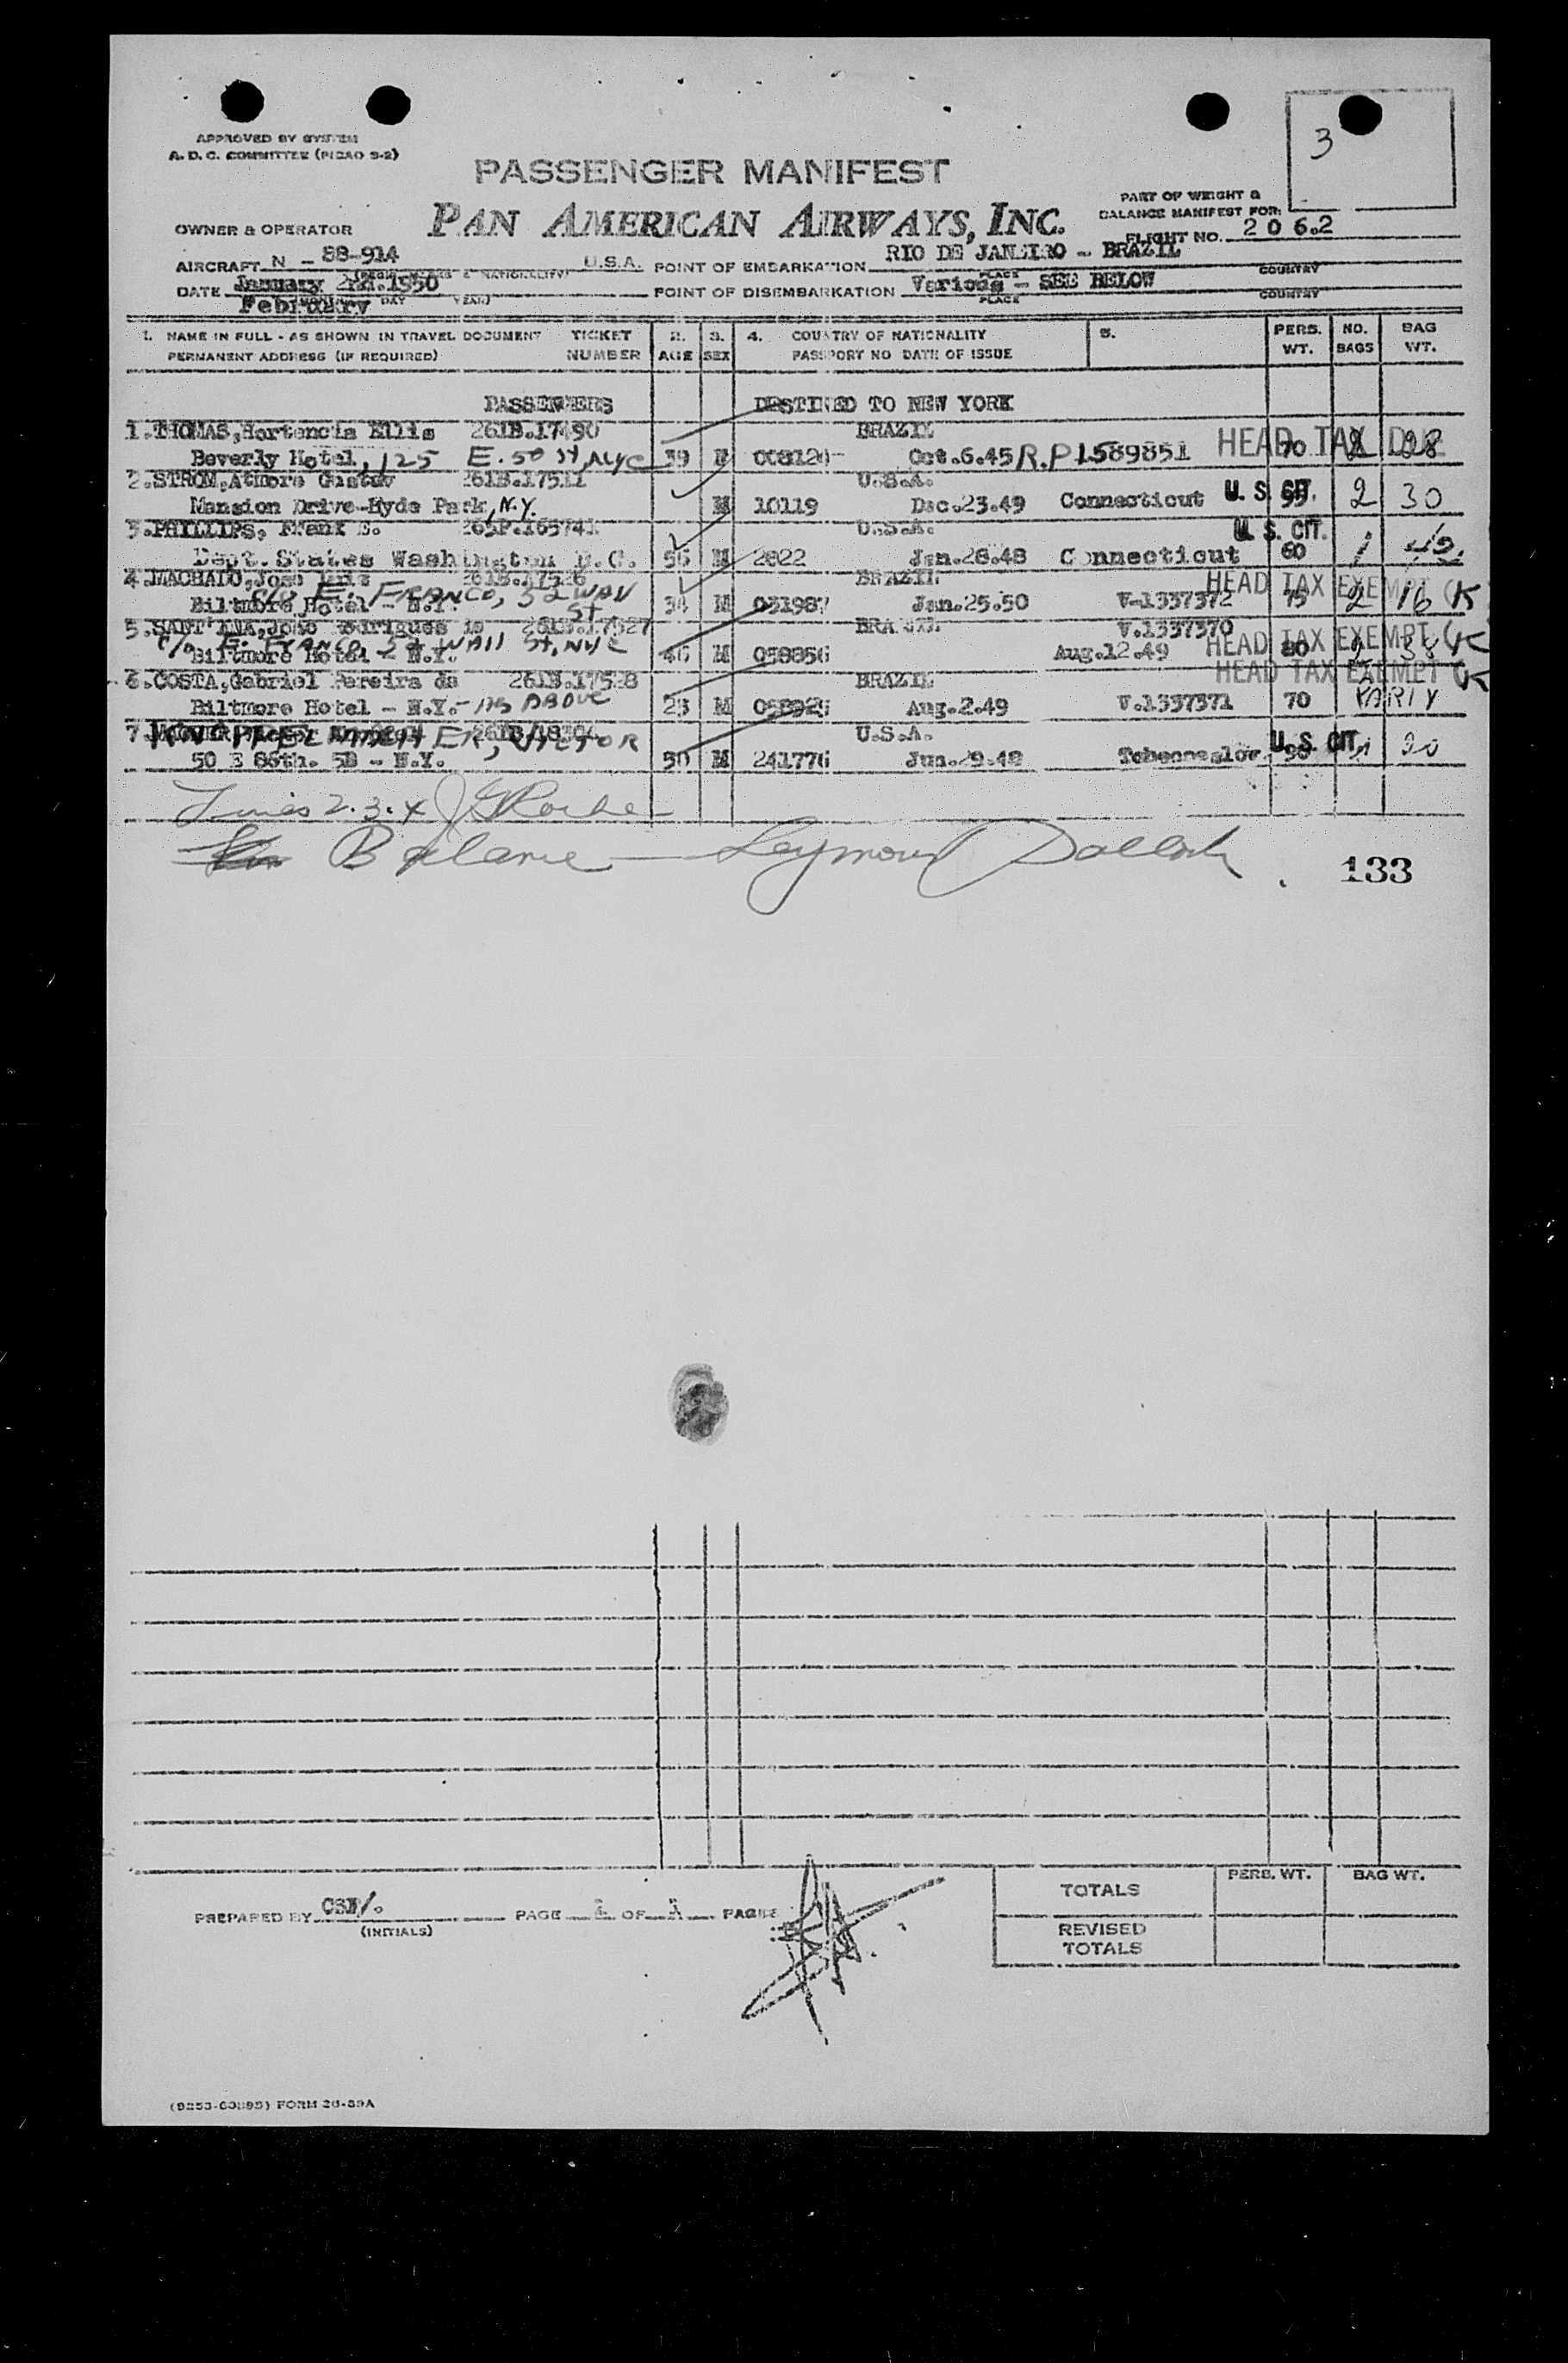 3
APPROVED BY SYSTEM
A. D. C. COMMITTEE (PICAO 9-2)
PASSENGER MANIFEST
PART OF WEIGHT &
BALANCE MANIFEST FOR:
OWNER & OPERATOR PAN AMERICAN AIRWAYS, INC. FLIGHT NO. 206.2
AIRCRAFT N - 88-914 U.S.A. POINT OF EMBARKATION RIO DE JANEIRO - BRAZIL
PLACE COUNTRY
DATE January 2nd.1950 POINT OF DISEMBARKATION Various - SEE BELOW
February MONTH DAY YEAR) PLACE COUNTRY
1. NAME IN FULL - AS SHOWN IN TRAVEL DOCUMENT TICKET 2. 3. 4. COUNTRY OF NATIONALITY 5. PERS. NO. BAG
PERMANENT ADDRESS (IF REQUIRED) NUMBER AGE SEX PASSPORT NO DATE OF ISSUE WT. BAGS WT.
PASSENGERS DESTINED TO NEW YORK
1.THOMAS,Hortencia Ellis 261B.17490 BRAZIL
Beverly Hotel, 125 E. 50 St, NYC 39 008120 Oct.6.45 R.P 1589851 HEAD TAX 70 2 28
2.STROM,Atmore Gustav 261B.17511 U.S.A.
Mansion Drive-Hyde Park, N.Y. M 10119 Dec.23.49 Connecticut U. S. CIT. 2 30
3.PHILLIPS, Frank 265P.165741 U.S.A. U. S. CIT.
Dept. States Washington D.C. 56 M 2822 Jan.28.48 Connecticut 60 1
4.MACHADO,Jose Luiz 261B.17526 BRAZIL HEAD TAX EXEMPT
C/O E. FRANCO, 52 WALL St
Biltmore Hotel - N.Y. 34 M 031987 Jan.25.50 V-1337372 75 2 16 K
5.SANT'ANA,Joao Rodrigues 261B.17527 BRAZIL V.1337370
C/O E. FRANCO, 52 WALL St, NYC
Biltmore Hotel - N.Y. 46 M 058856 Aug.12.49 HEAD TAX EXEMPT 80
6.COSTA,Gabriel Pereira da 261B.17528 BRAZIL HEAD TAX EXEMPT K
Biltmore Hotel - N.Y.- AS ABOVE 23 M Aug.2.49 V.1337371 70 PARTY
7. VICTOR U.S.A.
50 E 86th. 5B - N.Y. 50 M 241776 Jun.29.48 U. S. CIT. 20
Lines 2.3.4 J G Roche
Balance — Seymour
133
PREPARED BY (INITIALS) PAGE 1 OF 1 PAGES
PERS. WT. BAG WT.
TOTALS
REVISED
TOTALS
FORM 26-39A